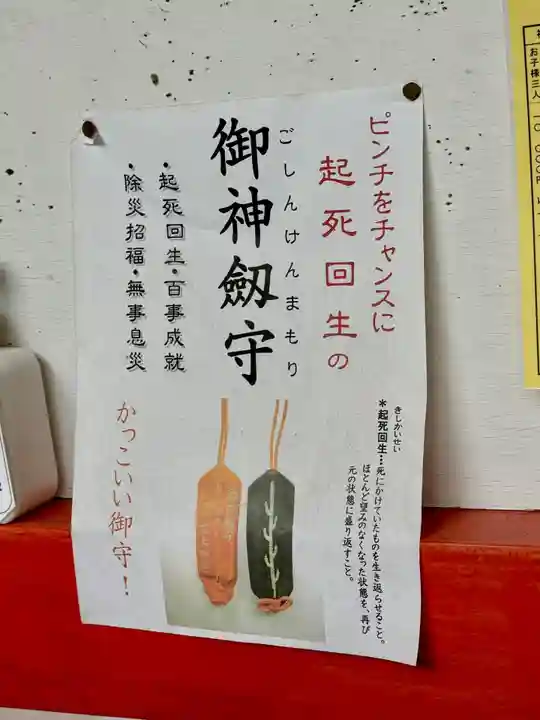 ピンチをチャンスに
起死回生の
ごしんけんまもり
御神劔守
・起死回生・百事成就
・除災招福・無事息災
かっこいい御守！
きしかいせい
＊起死回生…死にかけていたものを生き返らせること。
ほとんど望みのなくなった状態を、再び
元の状態に盛り返すこと。
お子様三人